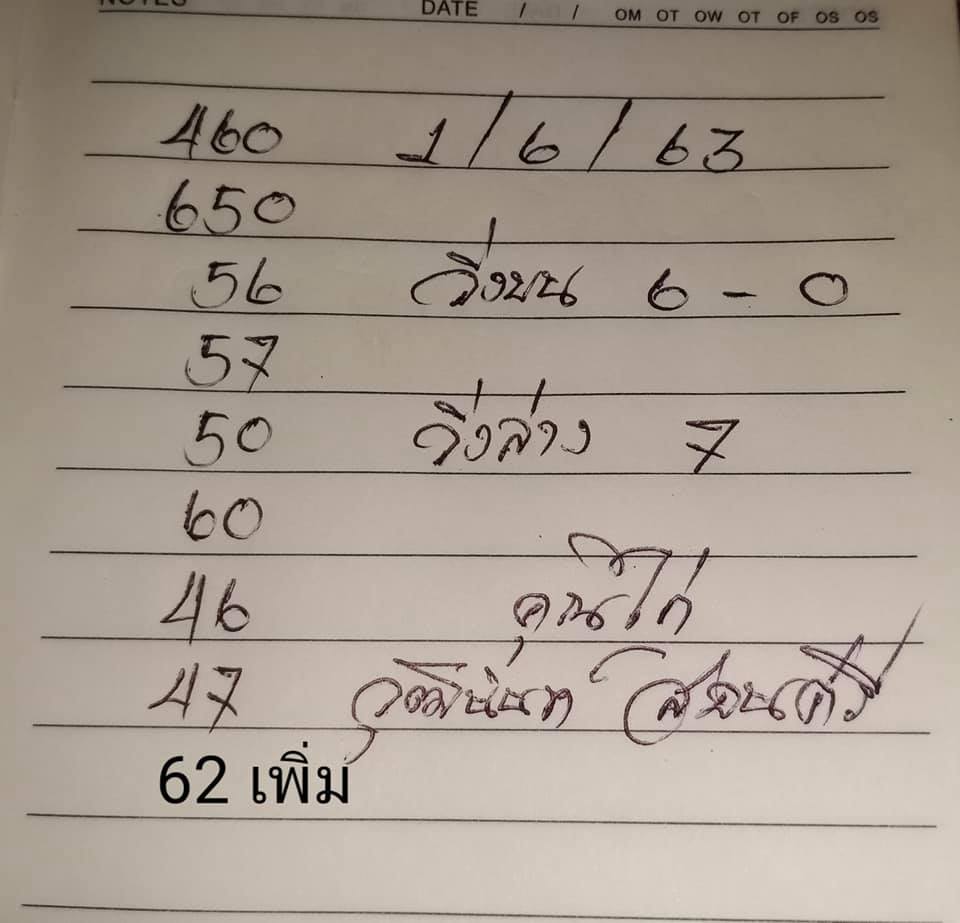 NOTES DATE / / OM OT OW OT OF OS OS
460 1/6/63
650
56 วิ่งบน 6 - 0
57
50 วิ่งล่าง 7
60
46 คุณไก่
47
62 เพิ่ม